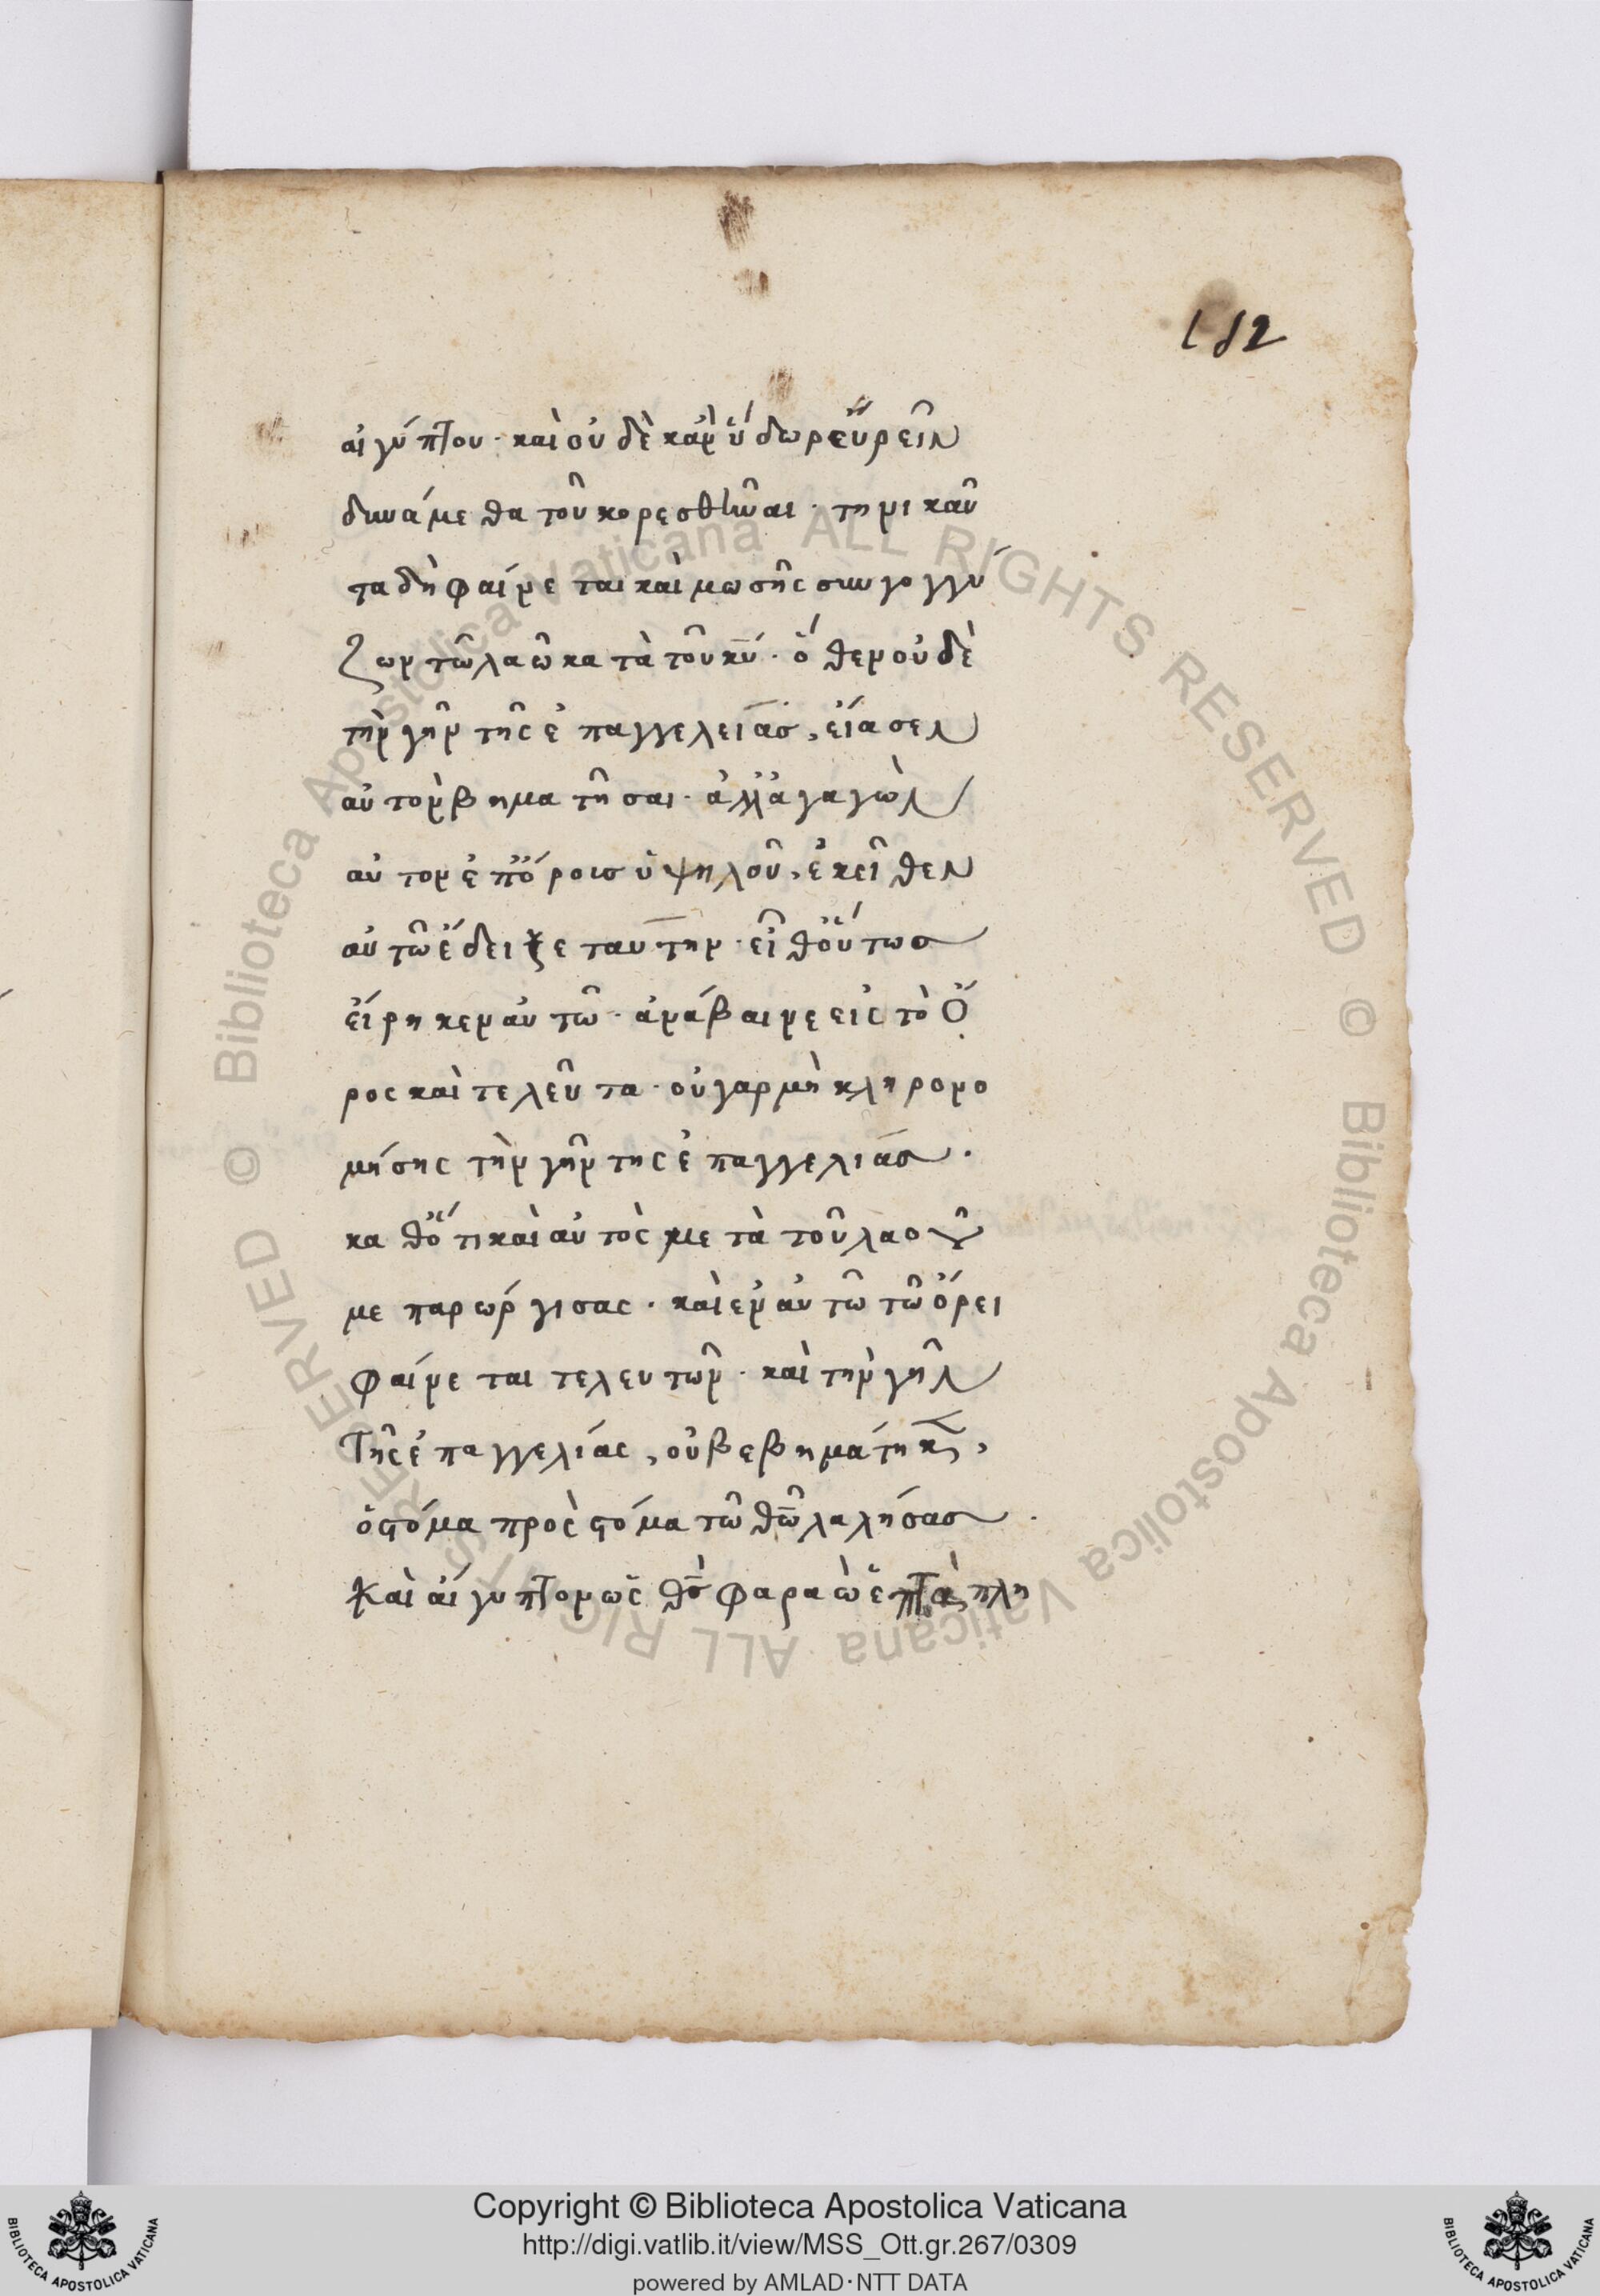 152
αἰγύπτου· καὶ οὐδὲ κἂν ὕδωρ εὑρεῖν
δυνάμεθα τοῦ κορεσθῆναι· τηνικαῦ
τα δὴ φαίνεται καὶ μωσῆς συγγογγύ
ζων τῶ λαῶ κατὰ τοῦ κυ· ὅθεν οὐδὲ
τὴν γῆν τῆς ἐπαγγελείας, εἴασεν
αὐτὸν βηματῆσαι· ἀλλ' ἀγαγὼν
αὐτον ἐπ' ὄροις ὑψηλοῦ, ἐκεῖθεν
αὐτῶ ἔδειξε ταύτην· εἶθ' οὕτως
εἴρηκεν αὐτῶ· ἀνάβαινε εἰς τὸ ὄ
ρος καὶ τελεῦτα· οὐ γαρ μὴ κληρονο
μήσης τὴν γῆν της ἐπαγγελίας·
καθ' ὅτι καὶ αὐτὸς μετὰ τοῦ λαοῦ
με παρώργισας· καὶ ἐν αὐτῶ τῶ ὄρει
φαίνεται τελευτῶν· καὶ τὴν γῆν
Τῆς ἐπαγγελίας, οὐ βεβημάτηκεν,
ὁ στόμα πρὸς στόμα τῶ θω λαλήσας·
Καὶ αἴγυπτον ὡς θς φαραὼ ἑπτὰ πλη
Copyright © Biblioteca Apostolica Vaticana
http://digi.vatlib.it/view/MSS_Ott.gr.267/0309
powered by AMLAD·NTT DATA
© Biblioteca Apostolica Vaticana ALL RIGHTS RESERVED
© Biblioteca Apostolica Vaticana ALL RIGHTS RESERVED
BIBLIOTECA APOSTOLICA VATICANA
BIBLIOTECA APOSTOLICA VATICANA